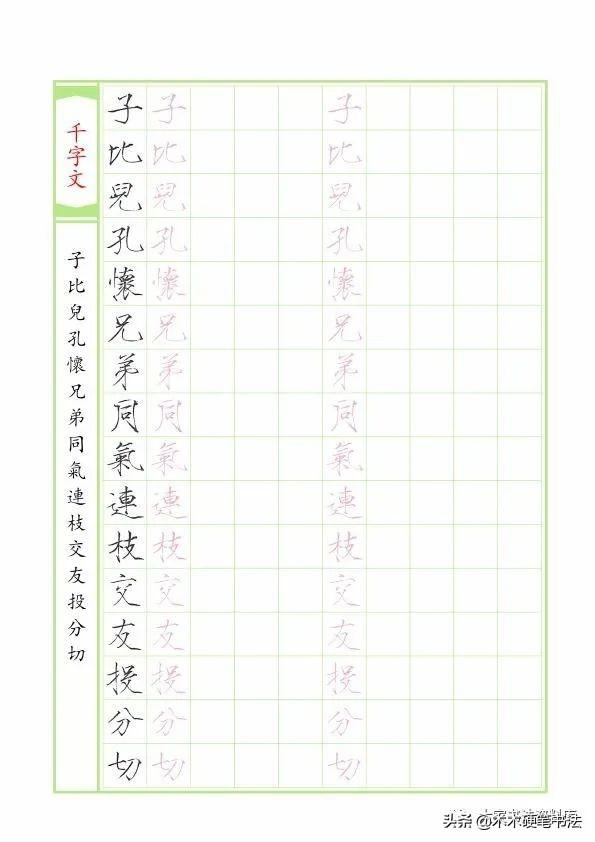 千字文
子比兒孔懷兄弟同氣連枝交友投分切
子比兒孔懷兄弟同氣連枝交友投分切
子比兒孔懷兄弟同氣連枝交友投分切
子比兒孔懷兄弟同氣連枝交友投分切
头条 @木木硬笔书法